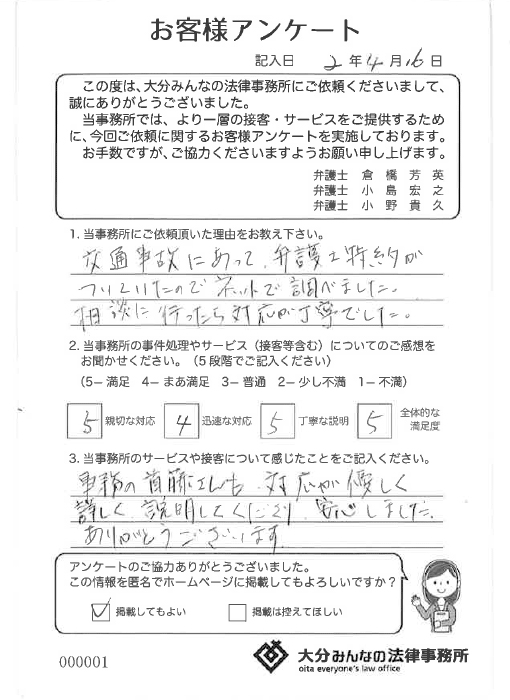 お客様アンケート
記入日 2 年 4 月 16 日
この度は、大分みんなの法律事務所にご依頼くださいまして、
誠にありがとうございました。
当事務所では、より一層の接客・サービスをご提供するため
に、今回ご依頼に関するお客様アンケートを実施しております。
お手数ですが、ご協力くださいますようお願い申し上げます。
弁護士 倉橋芳英
弁護士 小島宏之
弁護士 小野貴久
1. 当事務所にご依頼頂いた理由をお教え下さい。
交通事故にあって、弁護士特約が
ついていたので ネットで調べました。
相談に行ったら対応が丁寧でした。
2. 当事務所の事件処理やサービス（接客等含む）についてのご感想を
お聞かせください。（5段階でご記入ください）
（5－満足 4－まあ満足 3－普通 2－少し不満 1－不満）
5 親切な対応 4 迅速な対応 5 丁寧な説明 5 全体的な
満足度
3. 当事務所のサービスや接客について感じたことをご記入ください。
事務の首藤さんも、対応が優しく
詳しく、説明してくださり、安心しました。
ありがとうございます。
アンケートのご協力ありがとうございました。
この情報を匿名でホームページに掲載してもよろしいですか？
☑ 掲載してもよい □ 掲載は控えてほしい
000001
大分みんなの法律事務所
oita everyone's law office